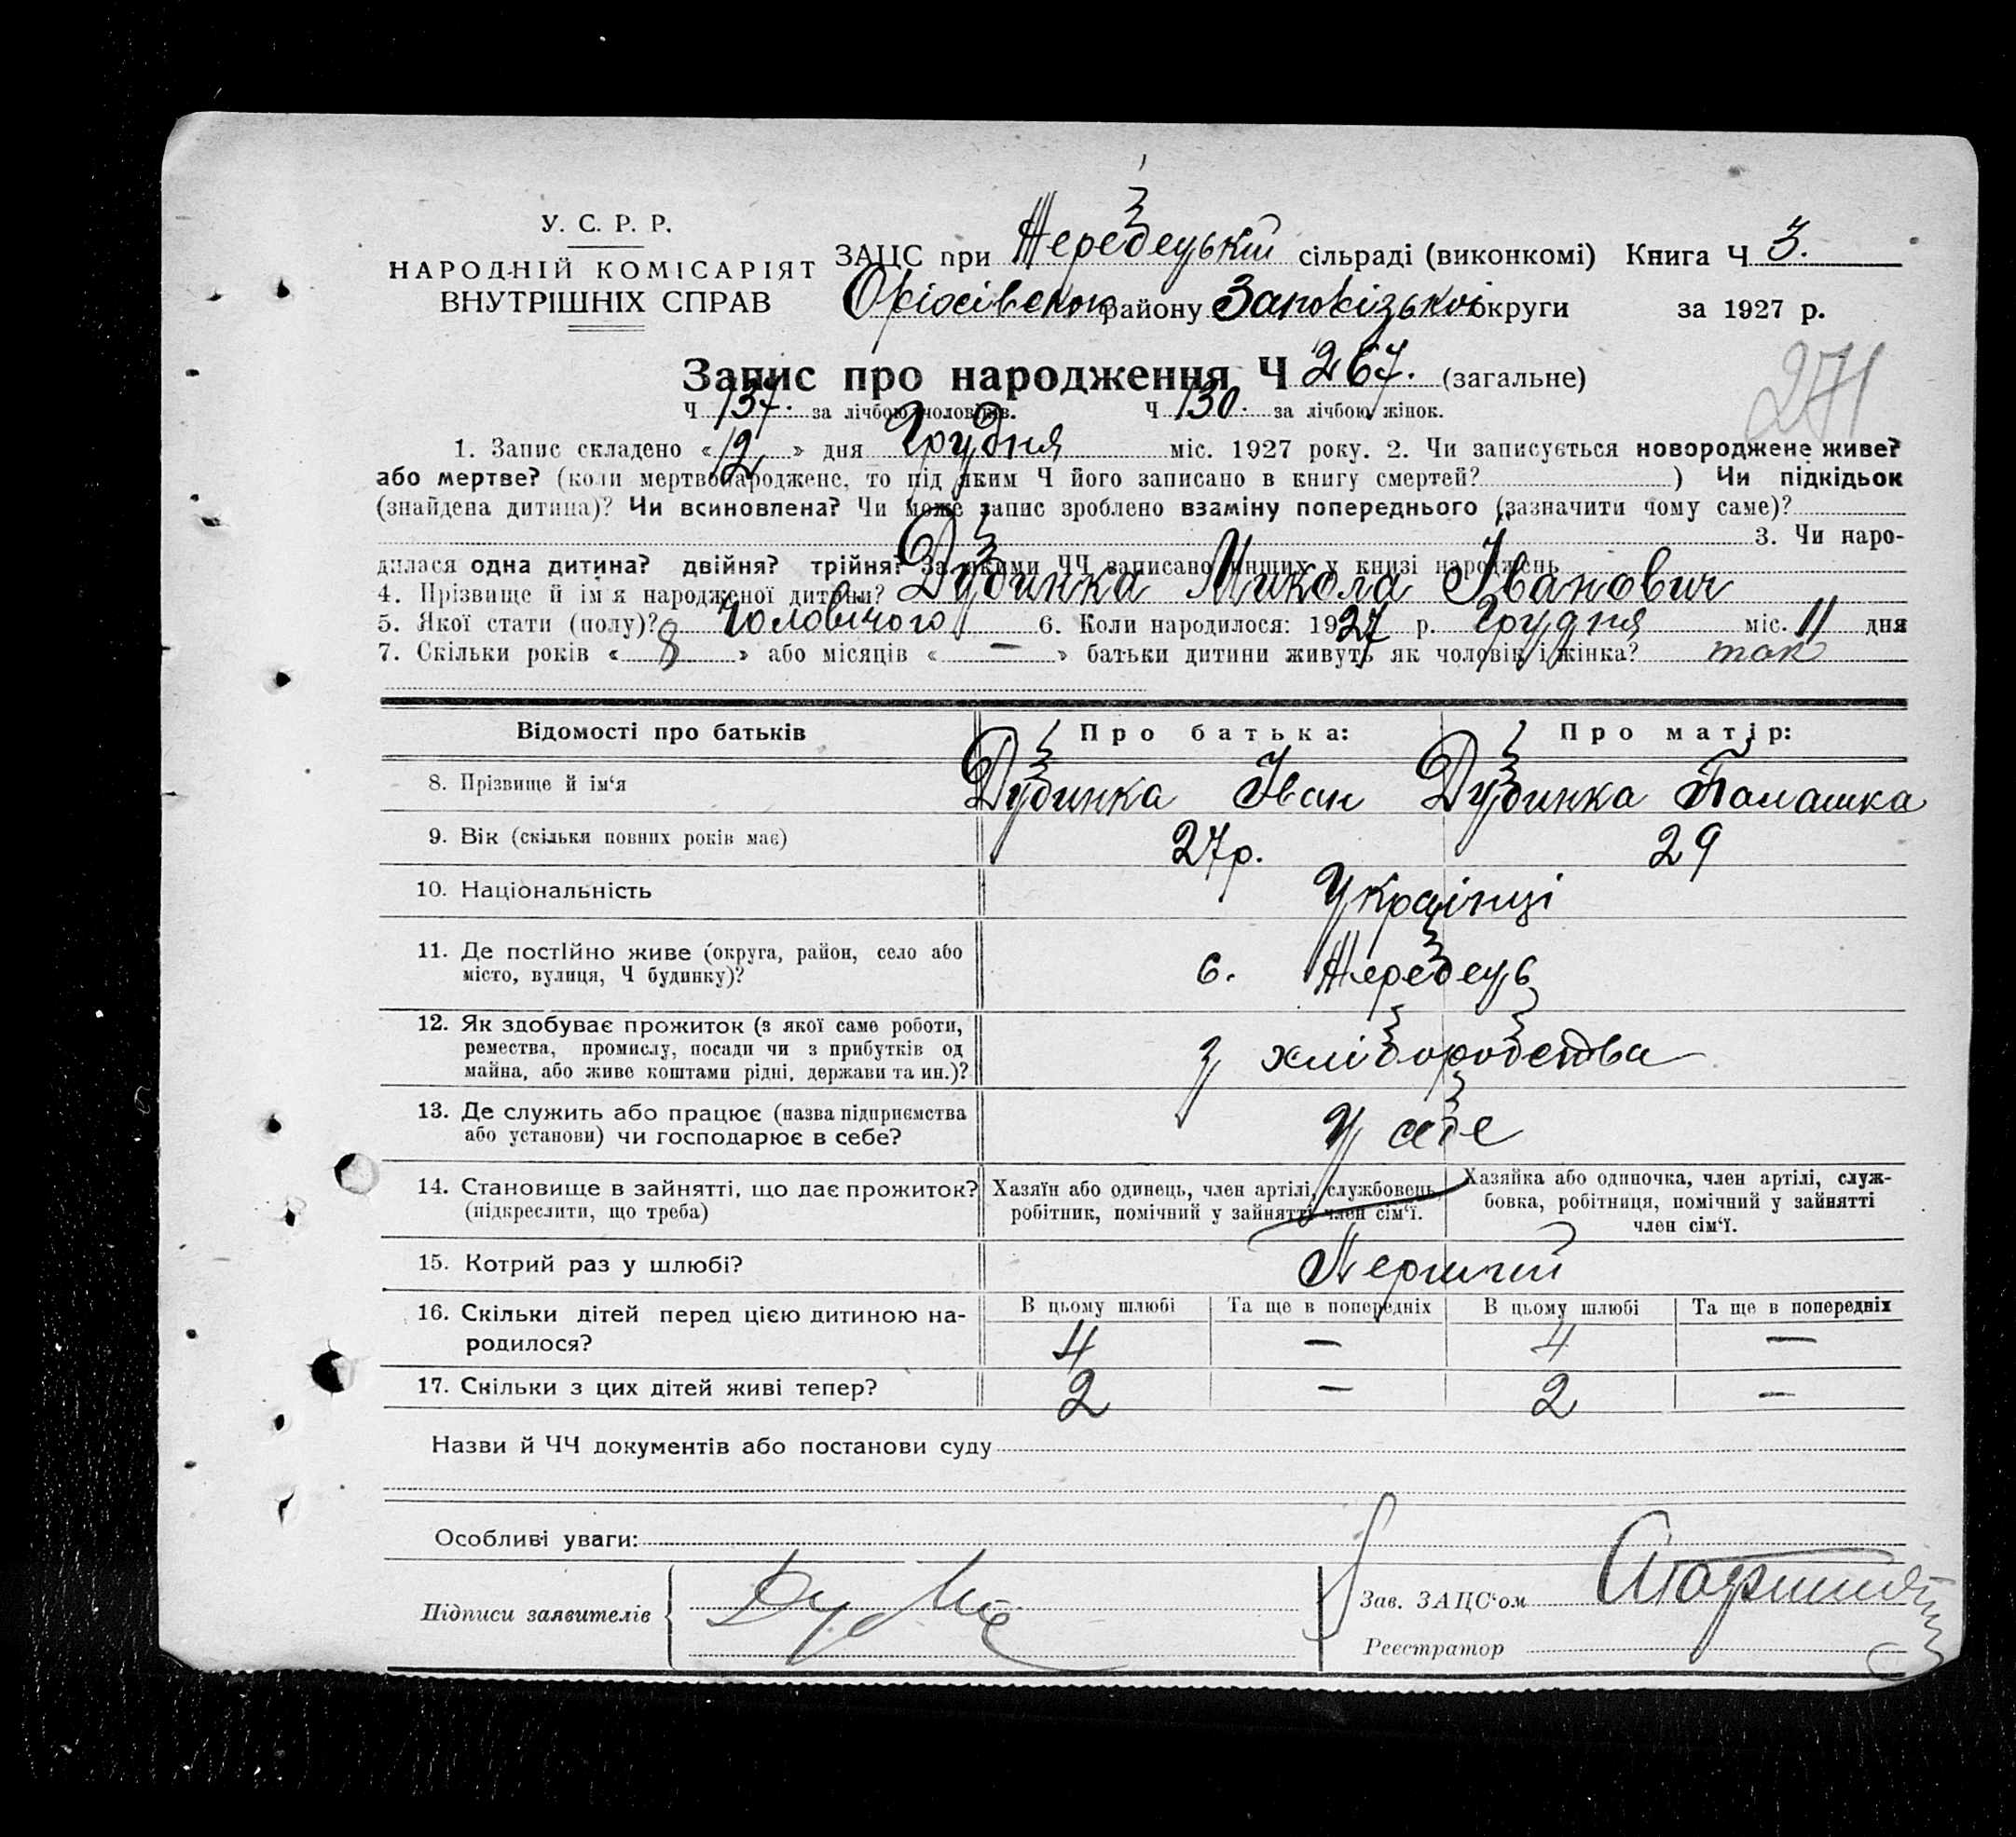 У. С. Р. Р.
НАРОДНІЙ КОМІСАРІЯТ
ВНУТРІШНІХ СПРАВ
ЗАЦС при Жеребецькій сільраді (виконкомі) Книга Ч 3.
Оріхівськ району Запорізької округи за 1927 р.
Запис про народження Ч 267. (загальне)
271
Ч 137. за лічбою чоловіків. Ч 130. за лічбою жінок.
1. Запис складено «12» дня Грудня міс. 1927 року. 2. Чи записується новороджене живе?
або мертве? (коли мертвонароджене, то під яким Ч його записано в книгу смертей? ) Чи підкідьок
(знайдена дитина)? Чи всиновлена? Чи може запис зроблено взаміну попереднього (зазначити чому саме)?
3. Чи наро-
дилася одна дитина? двійня? трійня? За якими ЧЧ записано инших у книзі народжень
4. Прізвище й ім'я народженої дитини? Дубинка Микола Іванович
5. Якої стати (полу)? Чоловічого 6. Коли народилося: 1927 р. Грудня міс. 11 дня
7. Скільки років «8» або місяців «—» батьки дитини живуть як чоловік і жінка? так
Відомості про батьків Про батька: Про матір:
8. Прізвище й ім'я Дубинка Іван Дубинка Палашка
9. Вік (скільки повних років має) 27 р. 29
10. Національність Українці
11. Де постійно живе (округа, район, село або
місто, вулиця, Ч будинку)? с. Жеребець
12. Як здобуває прожиток (з якої саме роботи,
ремества, промислу, посади чи з прибутків од
майна, або живе коштами рідні, держави та ин.)? З хліборобства
13. Де служить або працює (назва підприємства
або установи) чи господарює в себе? У себе
14. Становище в зайнятті, що дає прожиток? (підкреслити, що треба)
Хазяїн або одинець, член артілі, службовець,
робітник, помічний у зайнятті член сім'ї.
Хазяйка або одиночка, член артілі, служ-
бовка, робітниця, помічний у зайнятті
член сім'ї.
15. Котрий раз у шлюбі? Перший
В цьому шлюбі Та ще в попередніх В цьому шлюбі Та ще в попередніх
16. Скільки дітей перед цією дитиною на-
родилося? 4 — 4 —
17. Скільки з цих дітей живі тепер? 2 — 2 —
Назви й ЧЧ документів або постанови суду
Особливі уваги:
Підписи заявителів
Зав. ЗАЦС'ом
Реєстратор